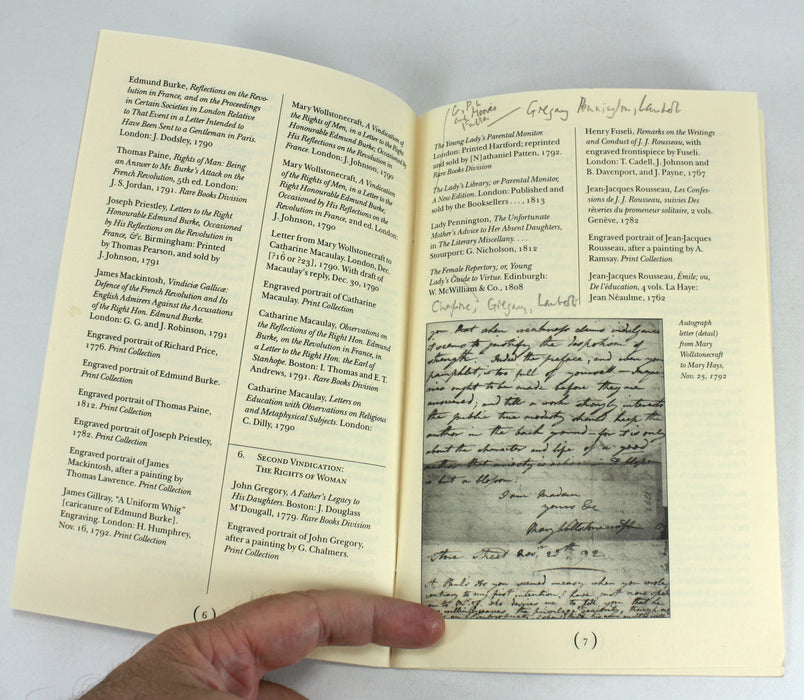 Edmund Burke, Reflections on the Revo-
lution in France, and on the Proceedings
in Certain Societies in London Relative
to That Event in a Letter Intended to
Have Been Sent to a Gentleman in Paris.
London: J. Dodsley, 1790
Thomas Paine, Rights of Man: Being
an Answer to Mr. Burke's Attack on the
French Revolution, 5th ed. London:
J. S. Jordan, 1791. Rare Books Division
Joseph Priestley, Letters to the Right
Honourable Edmund Burke, Occasioned
by His Reflections on the Revolution in
France, &c. Birmingham: Printed
by Thomas Pearson, and sold by
J. Johnson, 1791
James Mackintosh, Vindiciæ Gallicæ:
Defence of the French Revolution and Its
English Admirers Against the Accusations
of the Right Hon. Edmund Burke.
London: G. G. and J. Robinson, 1791
Engraved portrait of Richard Price,
1776. Print Collection
Engraved portrait of Edmund Burke.
Print Collection
Engraved portrait of Thomas Paine,
1812. Print Collection
Engraved portrait of Joseph Priestley,
1782. Print Collection
Engraved portrait of James
Mackintosh, after a painting by
Thomas Lawrence. Print Collection
James Gillray, "A Uniform Whig"
[caricature of Edmund Burke].
Engraving. London: H. Humphrey,
Nov. 16, 1792. Print Collection
Mary Wollstonecraft, A Vindication of
the Rights of Men, in a Letter to the Right
Honourable Edmund Burke, Occasioned by
His Reflections on the Revolution in
France. London: J. Johnson, 1790
Mary Wollstonecraft, A Vindication
of the Rights of Men, in a Letter to the
Right Honourable Edmund Burke,
Occasioned by His Reflections on the
Revolution in France, 2nd ed. London:
J. Johnson, 1790
Letter from Mary Wollstonecraft to
Catharine Macaulay. London, Dec.
[?16 or ?23], 1790. With draft of
Macaulay's reply, Dec. 30, 1790
Engraved portrait of Catharine
Macaulay. Print Collection
Catharine Macaulay, Observations on
the Reflections of the Right Hon. Edmund
Burke, on the Revolution in France, in
a Letter to the Right Hon. the Earl of
Stanhope. Boston: I. Thomas and E. T.
Andrews, 1791. Rare Books Division
Catharine Macaulay, Letters on
Education with Observations on Religious
and Metaphysical Subjects. London:
C. Dilly, 1790
6. Second Vindication:
The Rights of Woman
John Gregory, A Father's Legacy to
His Daughters. Boston: J. Douglass
M'Dougall, 1779. Rare Books Division
Engraved portrait of John Gregory,
after a painting by G. Chalmers.
Print Collection
(6)
G, P, L
Moores
Gregory Pennington, Lambert
The Young Lady's Parental Monitor.
London: Printed Hartford; reprinted
and sold by [N]athaniel Patten, 1792.
Rare Books Division
The Lady's Library; or Parental Monitor,
A New Edition. London: Published and
sold by the Booksellers . . . , 1813
Lady Pennington, The Unfortunate
Mother's Advice to Her Absent Daughters,
in The Literary Miscellany. . . .
Stourport: G. Nicholson, 1812
The Female Repertory; or, Young
Lady's Guide to Virtue. Edinburgh:
W. McWilliam & Co., 1808
Chapone, Gregory, Lambert
Henry Fuseli, Remarks on the Writings
and Conduct of J. J. Rousseau, with
engraved frontispiece by Fuseli.
London: T. Cadell, J. Johnson and
B. Davenport, and J. Payne, 1767
Jean-Jacques Rousseau, Les Confes-
sions de J. J. Rousseau, suivies Des
rêveries du promeneur solitaire, 2 vols.
Genève, 1782
Engraved portrait of Jean-Jacques
Rousseau, after a painting by A.
Ramsay. Print Collection
Jean-Jacques Rousseau, Émile; ou,
De l'éducation, 4 vols. La Haye:
Jean Néaulme, 1762
you that when weakness claims indulgence
it seems to justify the despotism of
strength. Indeed the preface, and even your
pamphlet, is too full of yourself—Inquir-
ies ought to be made before they are
answered; and till a work strongly interests
the public true modesty should keep the
author in the back ground—for it is only
about the character and life of a good
author that
is but a blossom.
I am Madam
yours &c
Mary Wollstonecraft
Store Street Nov. 25th 92
Autograph
letter (detail)
from Mary
Wollstonecraft
to Mary Hays,
Nov. 25, 1792
(7)